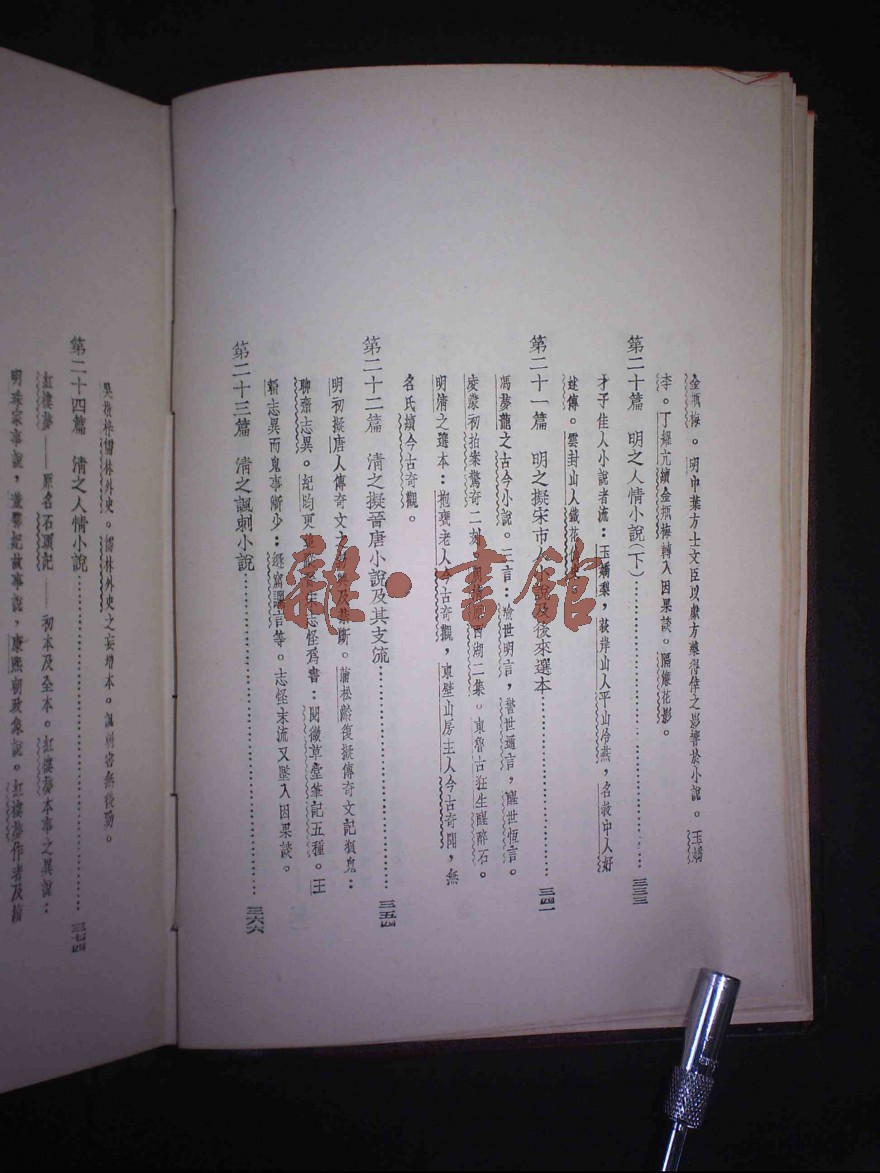 金瓶梅。明中葉方士文臣以獻方藥得倖之影響於小說。玉嬌
李。丁耀亢續金瓶梅轉入因果談。隔簾花影。
第二十篇 明之人情小說(下)……三三三
才子佳人小說者流：玉嬌梨，荻岸山人平山冷燕，名教中人好
逑傳。雲封山人鐵花仙史。
第二十一篇 明之擬宋市人小說及後來選本……三四一
馮夢龍之古今小說。三言：喻世明言，警世通言，醒世恆言。
凌濛初拍案驚奇二刻。西湖二集。東魯古狂生醒醉石。
明清之選本：抱甕老人今古奇觀，東壁山房主人今古奇聞，無
名氏續今古奇觀。
第二十二篇 清之擬晉唐小說及其支流……三五四
明初擬唐人傳奇文之及禁斷。蒲松齡復擬傳奇文記狐鬼：
聊齋志異。紀昀更志怪爲書：閱微草堂筆記五種。王
韜志異而鬼事漸少：遯窟讕言等。志怪末流又墜入因果談。
第二十三篇 清之諷刺小說……三六六
吳敬梓儒林外史。儒林外史之妄增本。諷刺書無後勁。
第二十四篇 清之人情小說……三七四
紅樓夢——原名石頭記——初本及全本。紅樓夢本事之異說：
明珠家事說，董鄂妃故事說，康熙朝政象說。紅樓夢作者及續
雜·書館